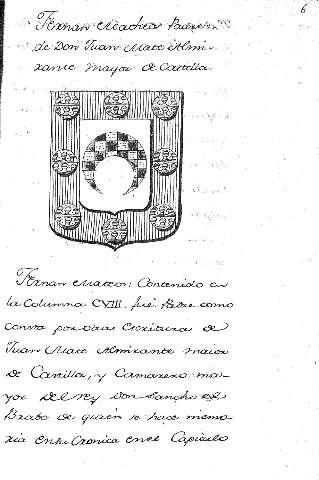 6
Fernan Matheos Padre
de Don Juan Mate Almi-
rante mayor de Castilla
Fernan Mateos: Contenido en
la Columna CVIII. fué Padre como
consta por otra Escritura de
Juan Mate Almirante maior
de Castilla, y Camarero ma-
yor del rey Don Sancho el
Brabo de quién se hace memo-
ria en su Cronica en el Capitulo